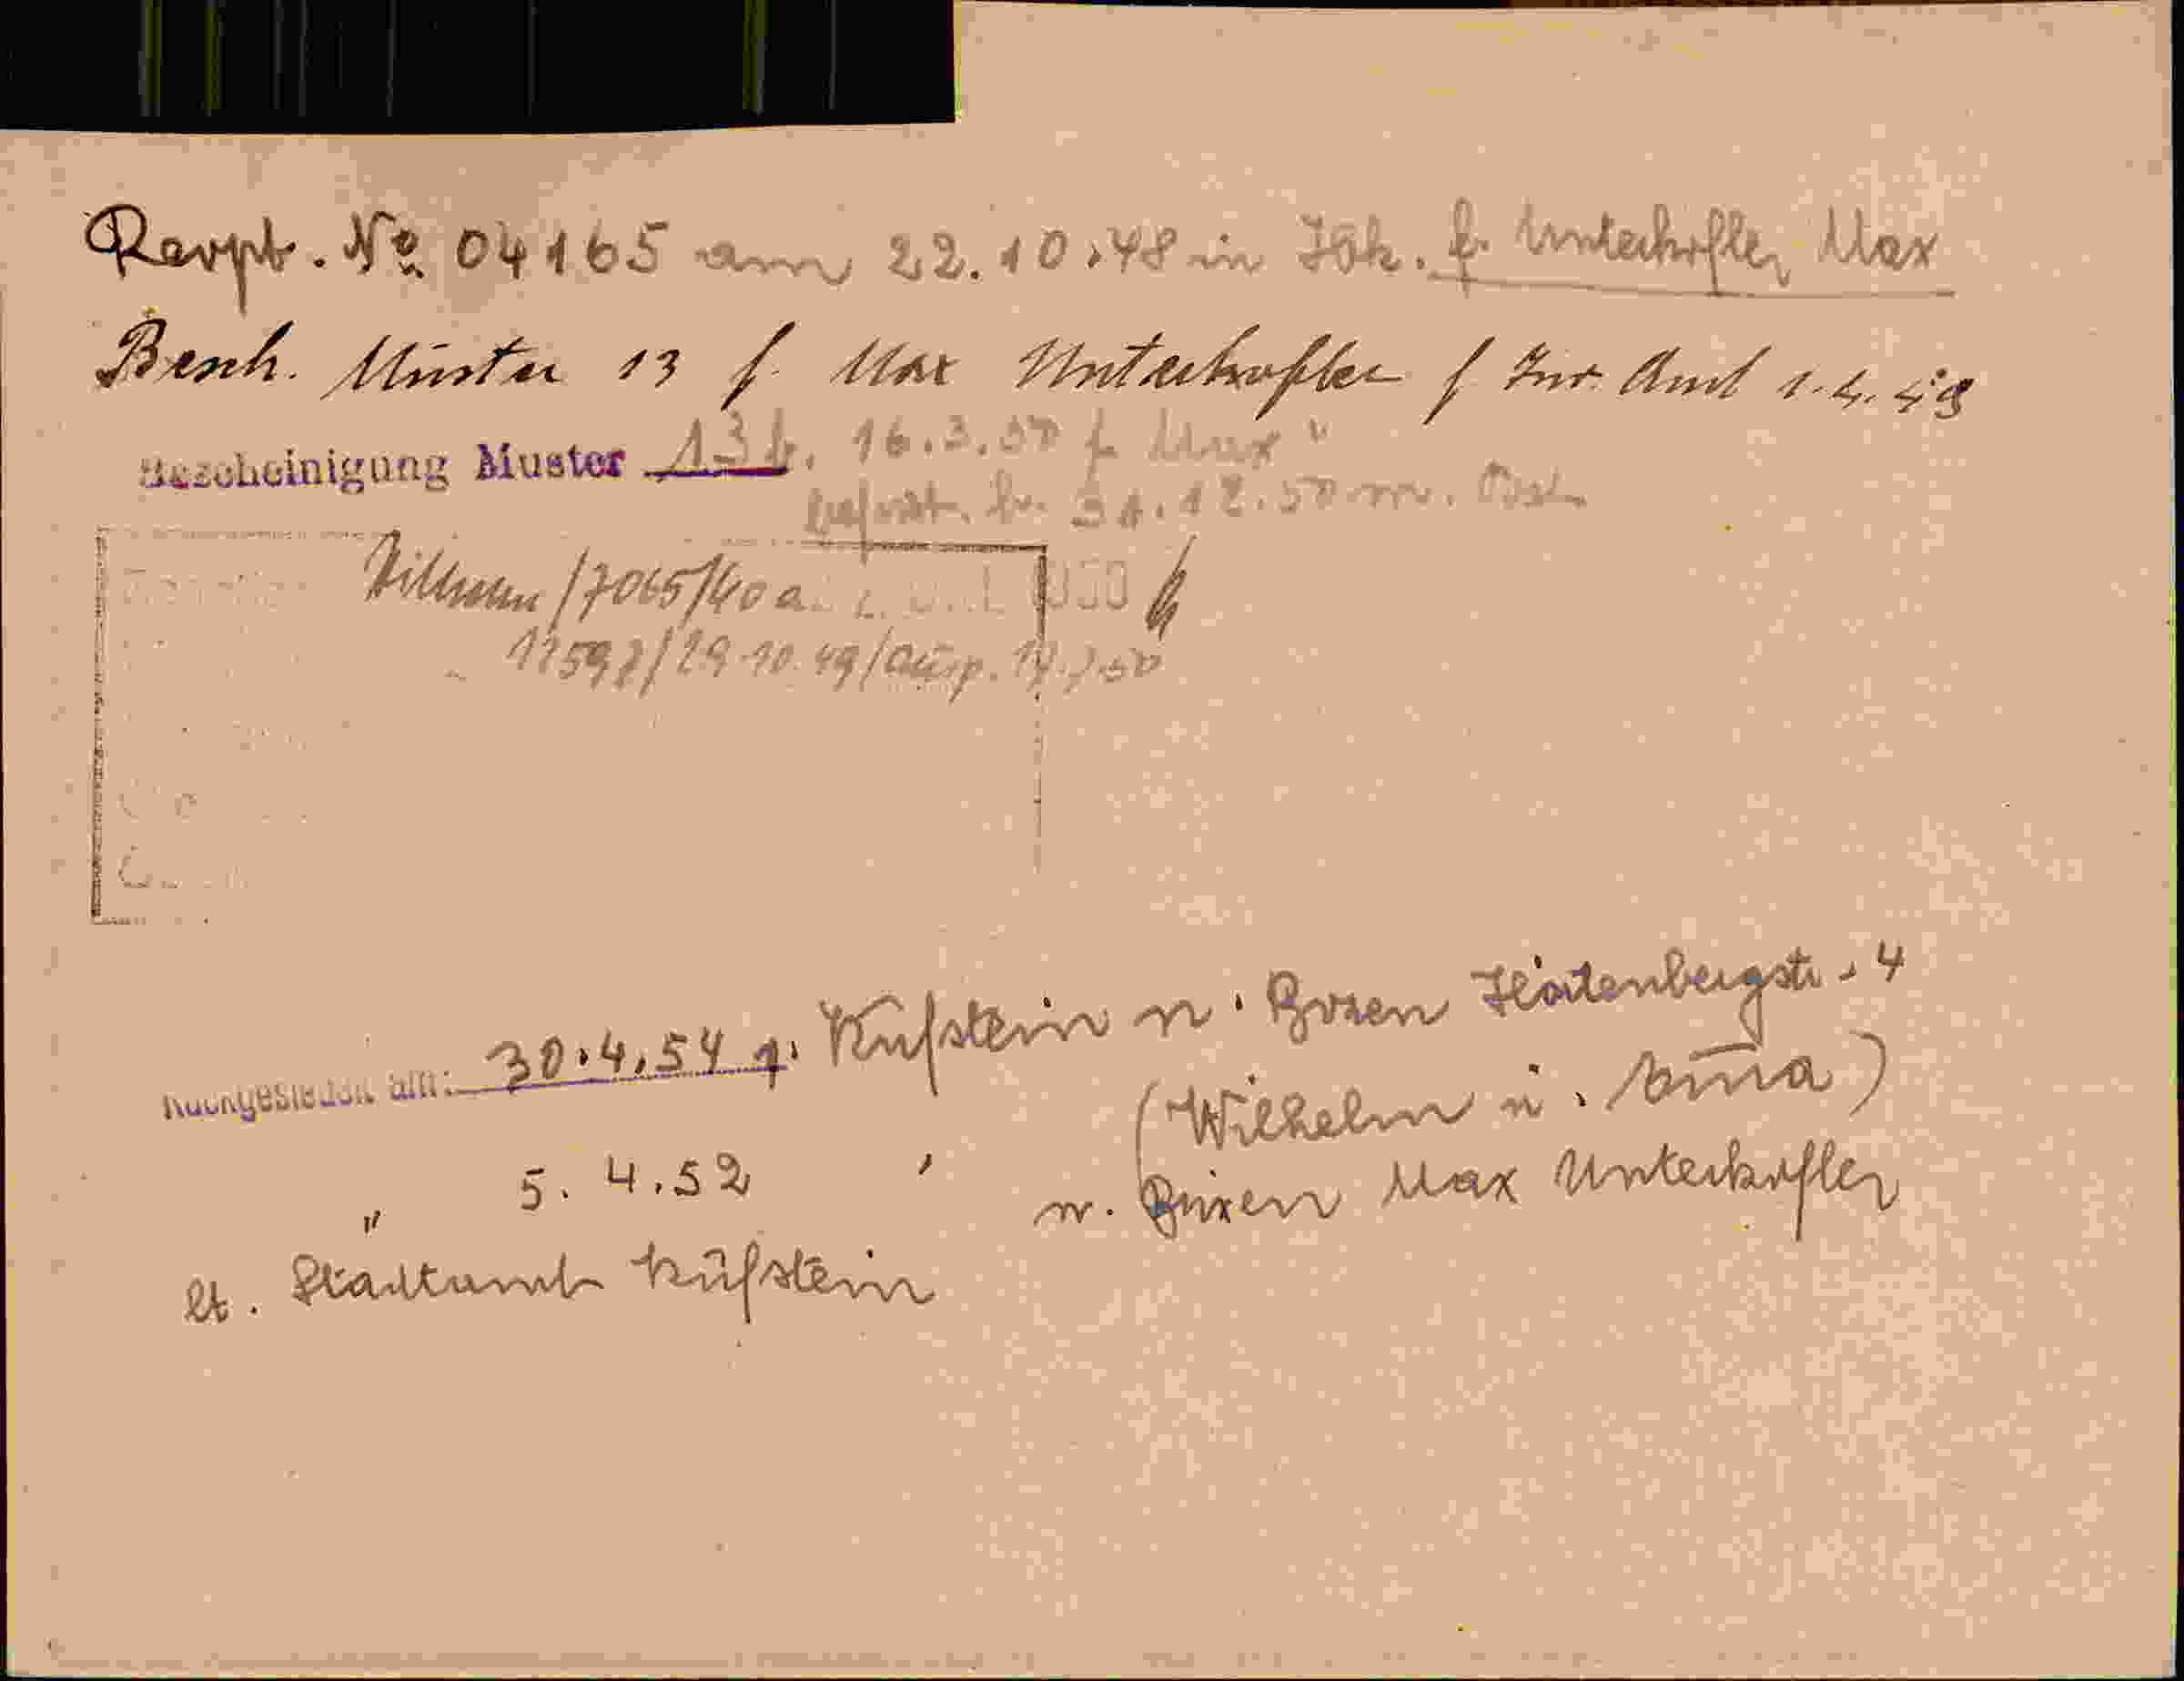 Revpt. No 04165 am 22.10.48 in Ibk. f. Unterkofler Max
Besch. Muster 13 f. Max Unterkofler f Inv. Amt 1.4.49
Bescheinigung Muster 13 b. 16.3.50 f. Max "
befrist. b. 31.12.50
Wilhelm /7065/40 a
" 11597/29.10.49/
Rückgesiedelt am: 30.4.51 n. Kufstein v. Bozen Hörtenbergstr. 4
(Wilhelm u. Anna)
" 5.4.52 " v. Brixen Max Unterkofler
lt. Stadtamt Kufstein